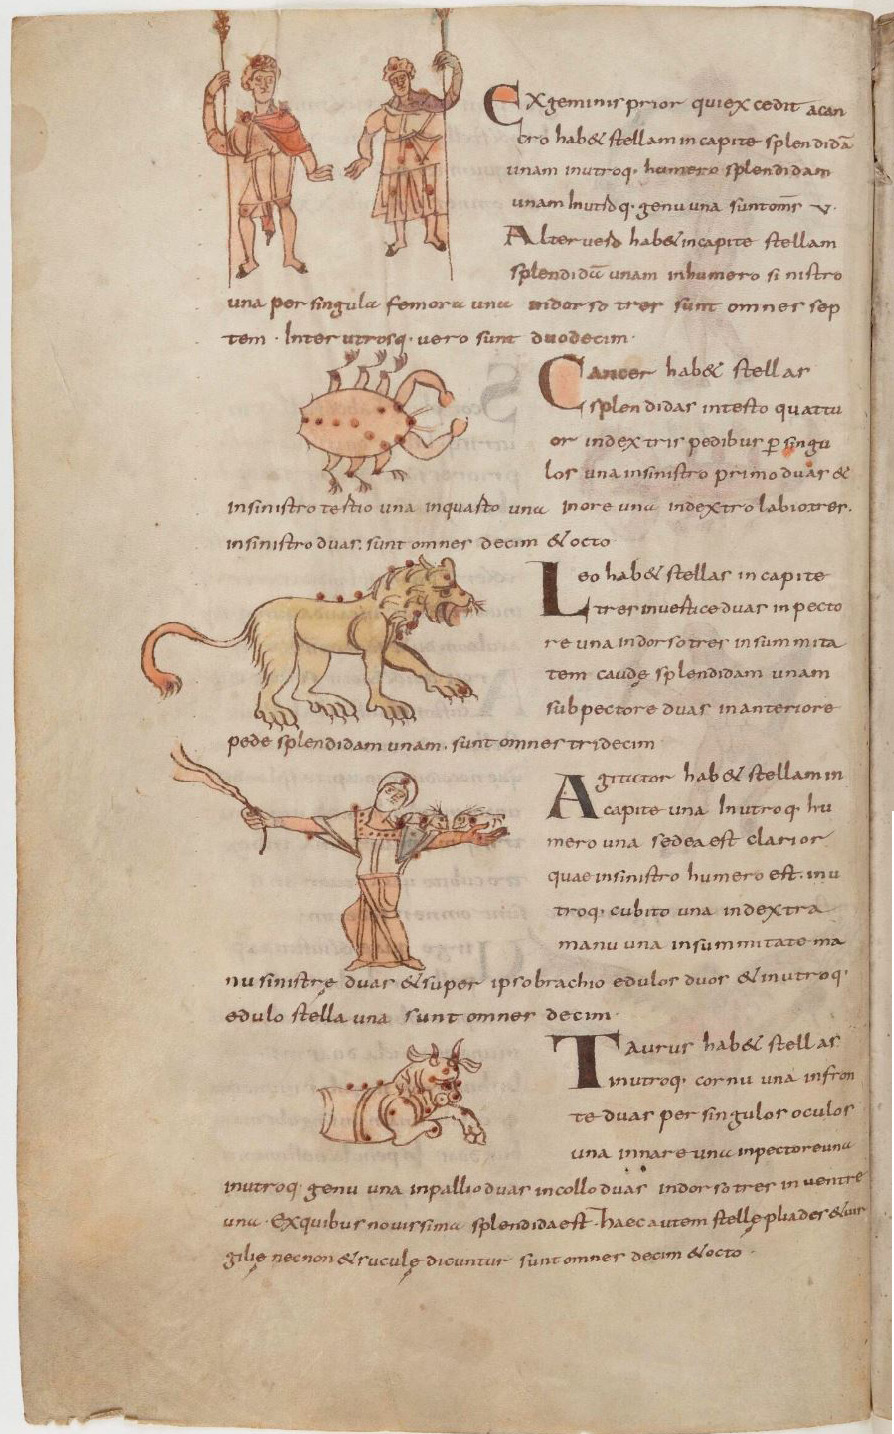 Exgeminis prior quiexcedit acan
cro hab& stellam in capite splendidā
unam inutroq· humero splendidam
unam Inutroq· genu una sunt om̄s v·
Alter vero hab& in capite stellam
splendidā unam inhumero sinistro
una per singula femora una indorso tres sunt omnes sep
tem · Inter utrosq· vero sunt duodecim·
Cancer hab& stellas
splendidas intesto quattu
or indextris pedibus p singu
los una insinistro primo duas &
insinistro testio una inquasto una inore una indextro labiotres.
insinistro duas. sunt omnes decim &octo
Leo hab& stellas in capite
tres investice duas in pecto
re una indorso tres insummita
tem caudę splendidam unam
subpectore duas inanteriore
pede splendidam unam. sunt omnes tridecim
Agitator hab& stellam in
capite una Inutroq· hu
mero una sedea est clarior
quae insinistro humero est. inu
troq· cubito una indextra
manu una insummitate ma
nu sinistrę duas &super ipso brachio edulos duos &inutroq·
edulo stella una sunt omnes decim·
Taurus hab& stellas
inutroq· cornu una infron
te duas per singulos oculos
una innare una inpectore una
inutroq· genu una inpallio duas incollo duas indorso tres in ventre
una · Exquibus novissima splendida est · haec autem stellę pliades &vir
gilię necnon &suculę dicuntur sunt omnes decim &octo ·